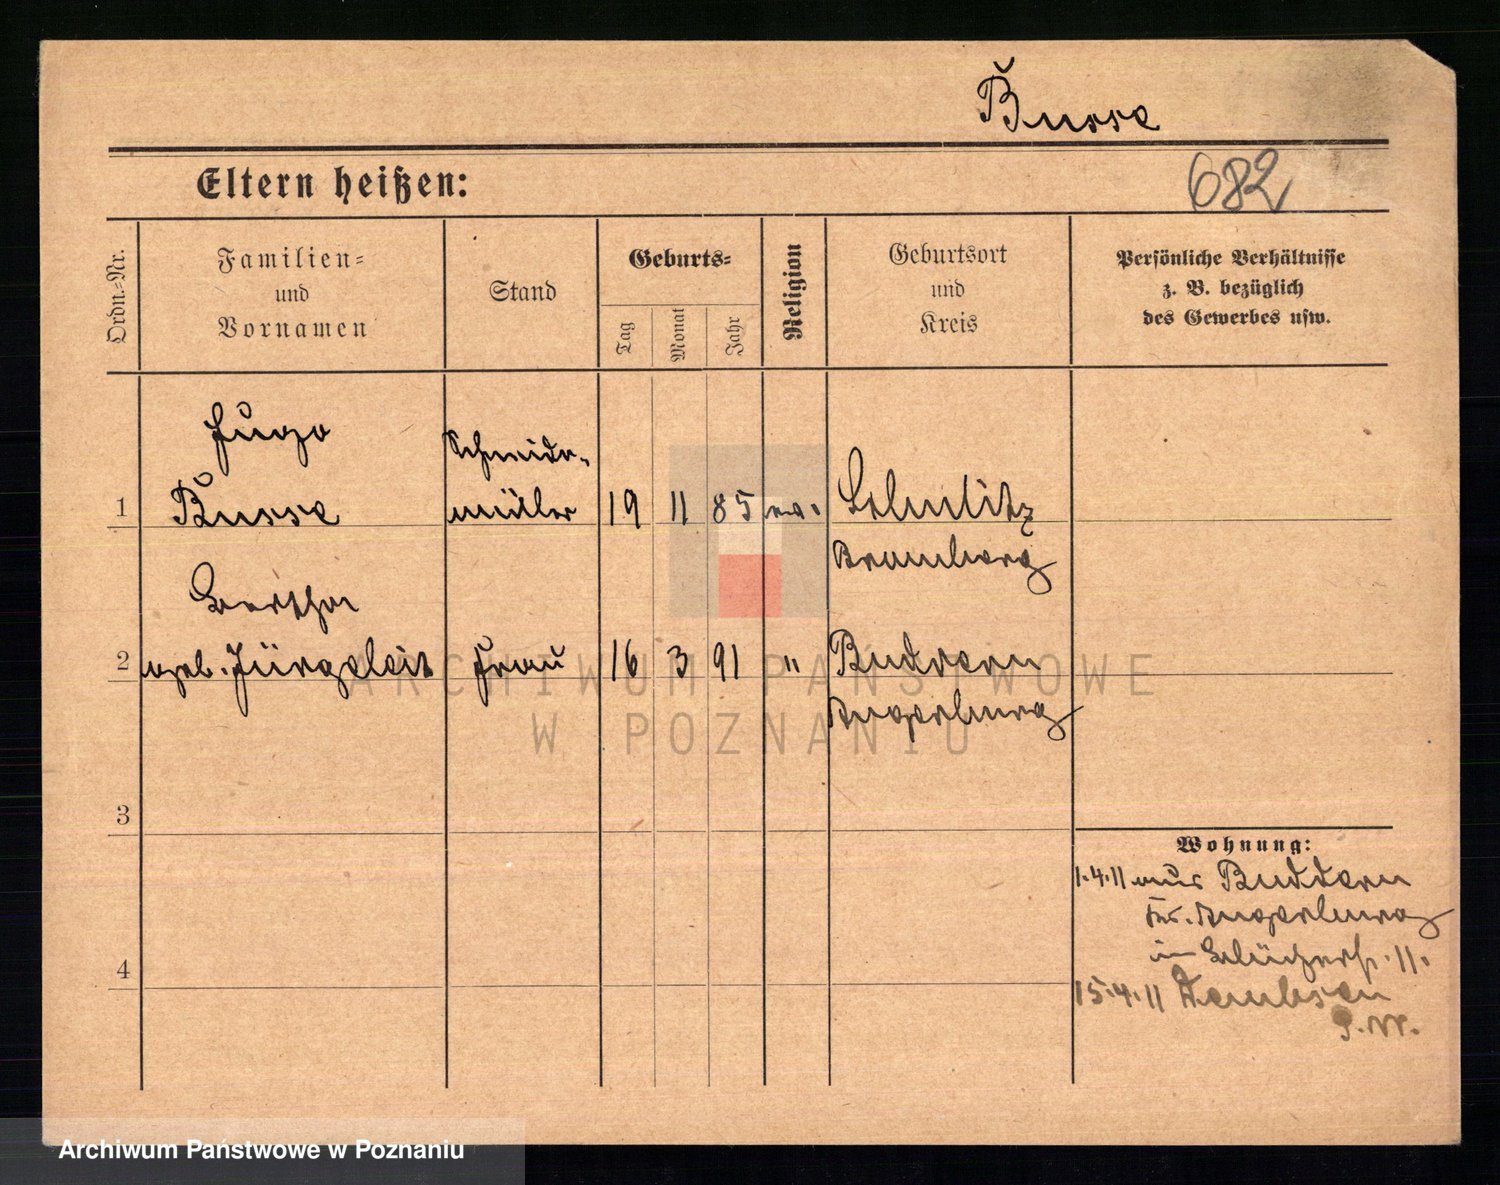 Busse
Eltern heißen:
682
Ordn.-Nr.
Familien-
und
Vornamen
Stand
Geburts-
Tag
Monat
Jahr
Religion
Geburtsort
und
Kreis
Persönliche Verhältnisse
z. B. bezüglich
des Gewerbes usw.
Hugo
Schneide-
1 Busse müller 19 11 85 ev.
Bromberg
Bertha
2 geb. Jürgeleit Frau 16 3 91 " Buddern
Angerburg
3
Wohnung:
1.4.11 aus Buddern
Kr. Angerburg
in Blücherstr. 11.
4
15.4.11 Dembsen
ARCHIWUM PAŃSTWOWE
W POZNANIU
Archiwum Państwowe w Poznaniu